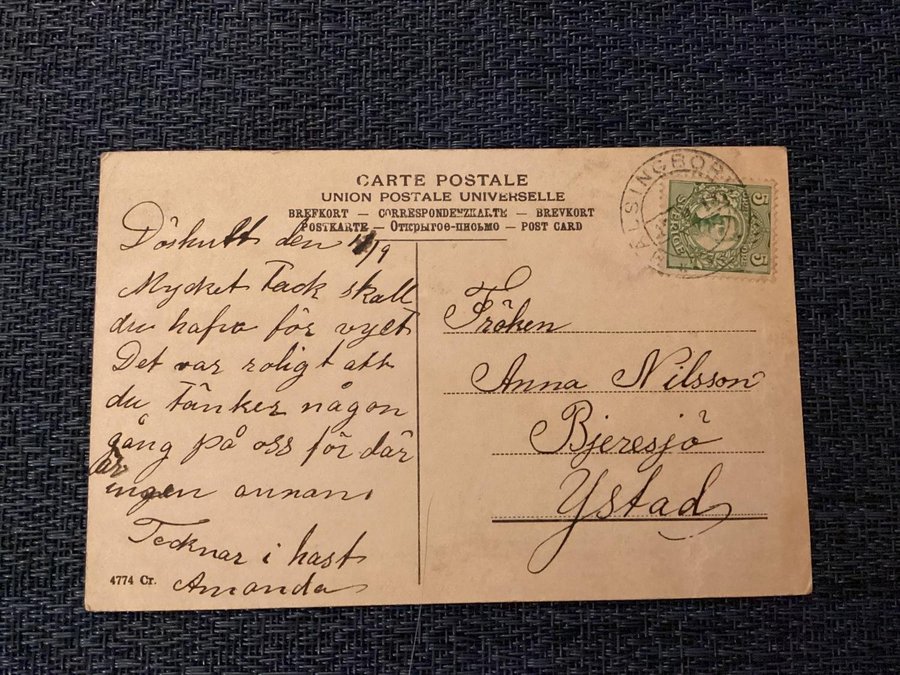 CARTE POSTALE
UNION POSTALE UNIVERSELLE
BREFKORT — CORRESPONDENZKARTE — BREVKORT
POSTKARTE — Открытое-письмо — POST CARD
HÄLSINGBORG
5 5
SVERIGE
den /9
Mycket Tack skall
du hafva för vyet
Det var roligt att
du tänker någon
gång på oss för där
är ingen annan.
Tecknar i hast
Amanda
4774 Cr.
Fröken
Anna Nilsson
Bjeresjö
Ystad